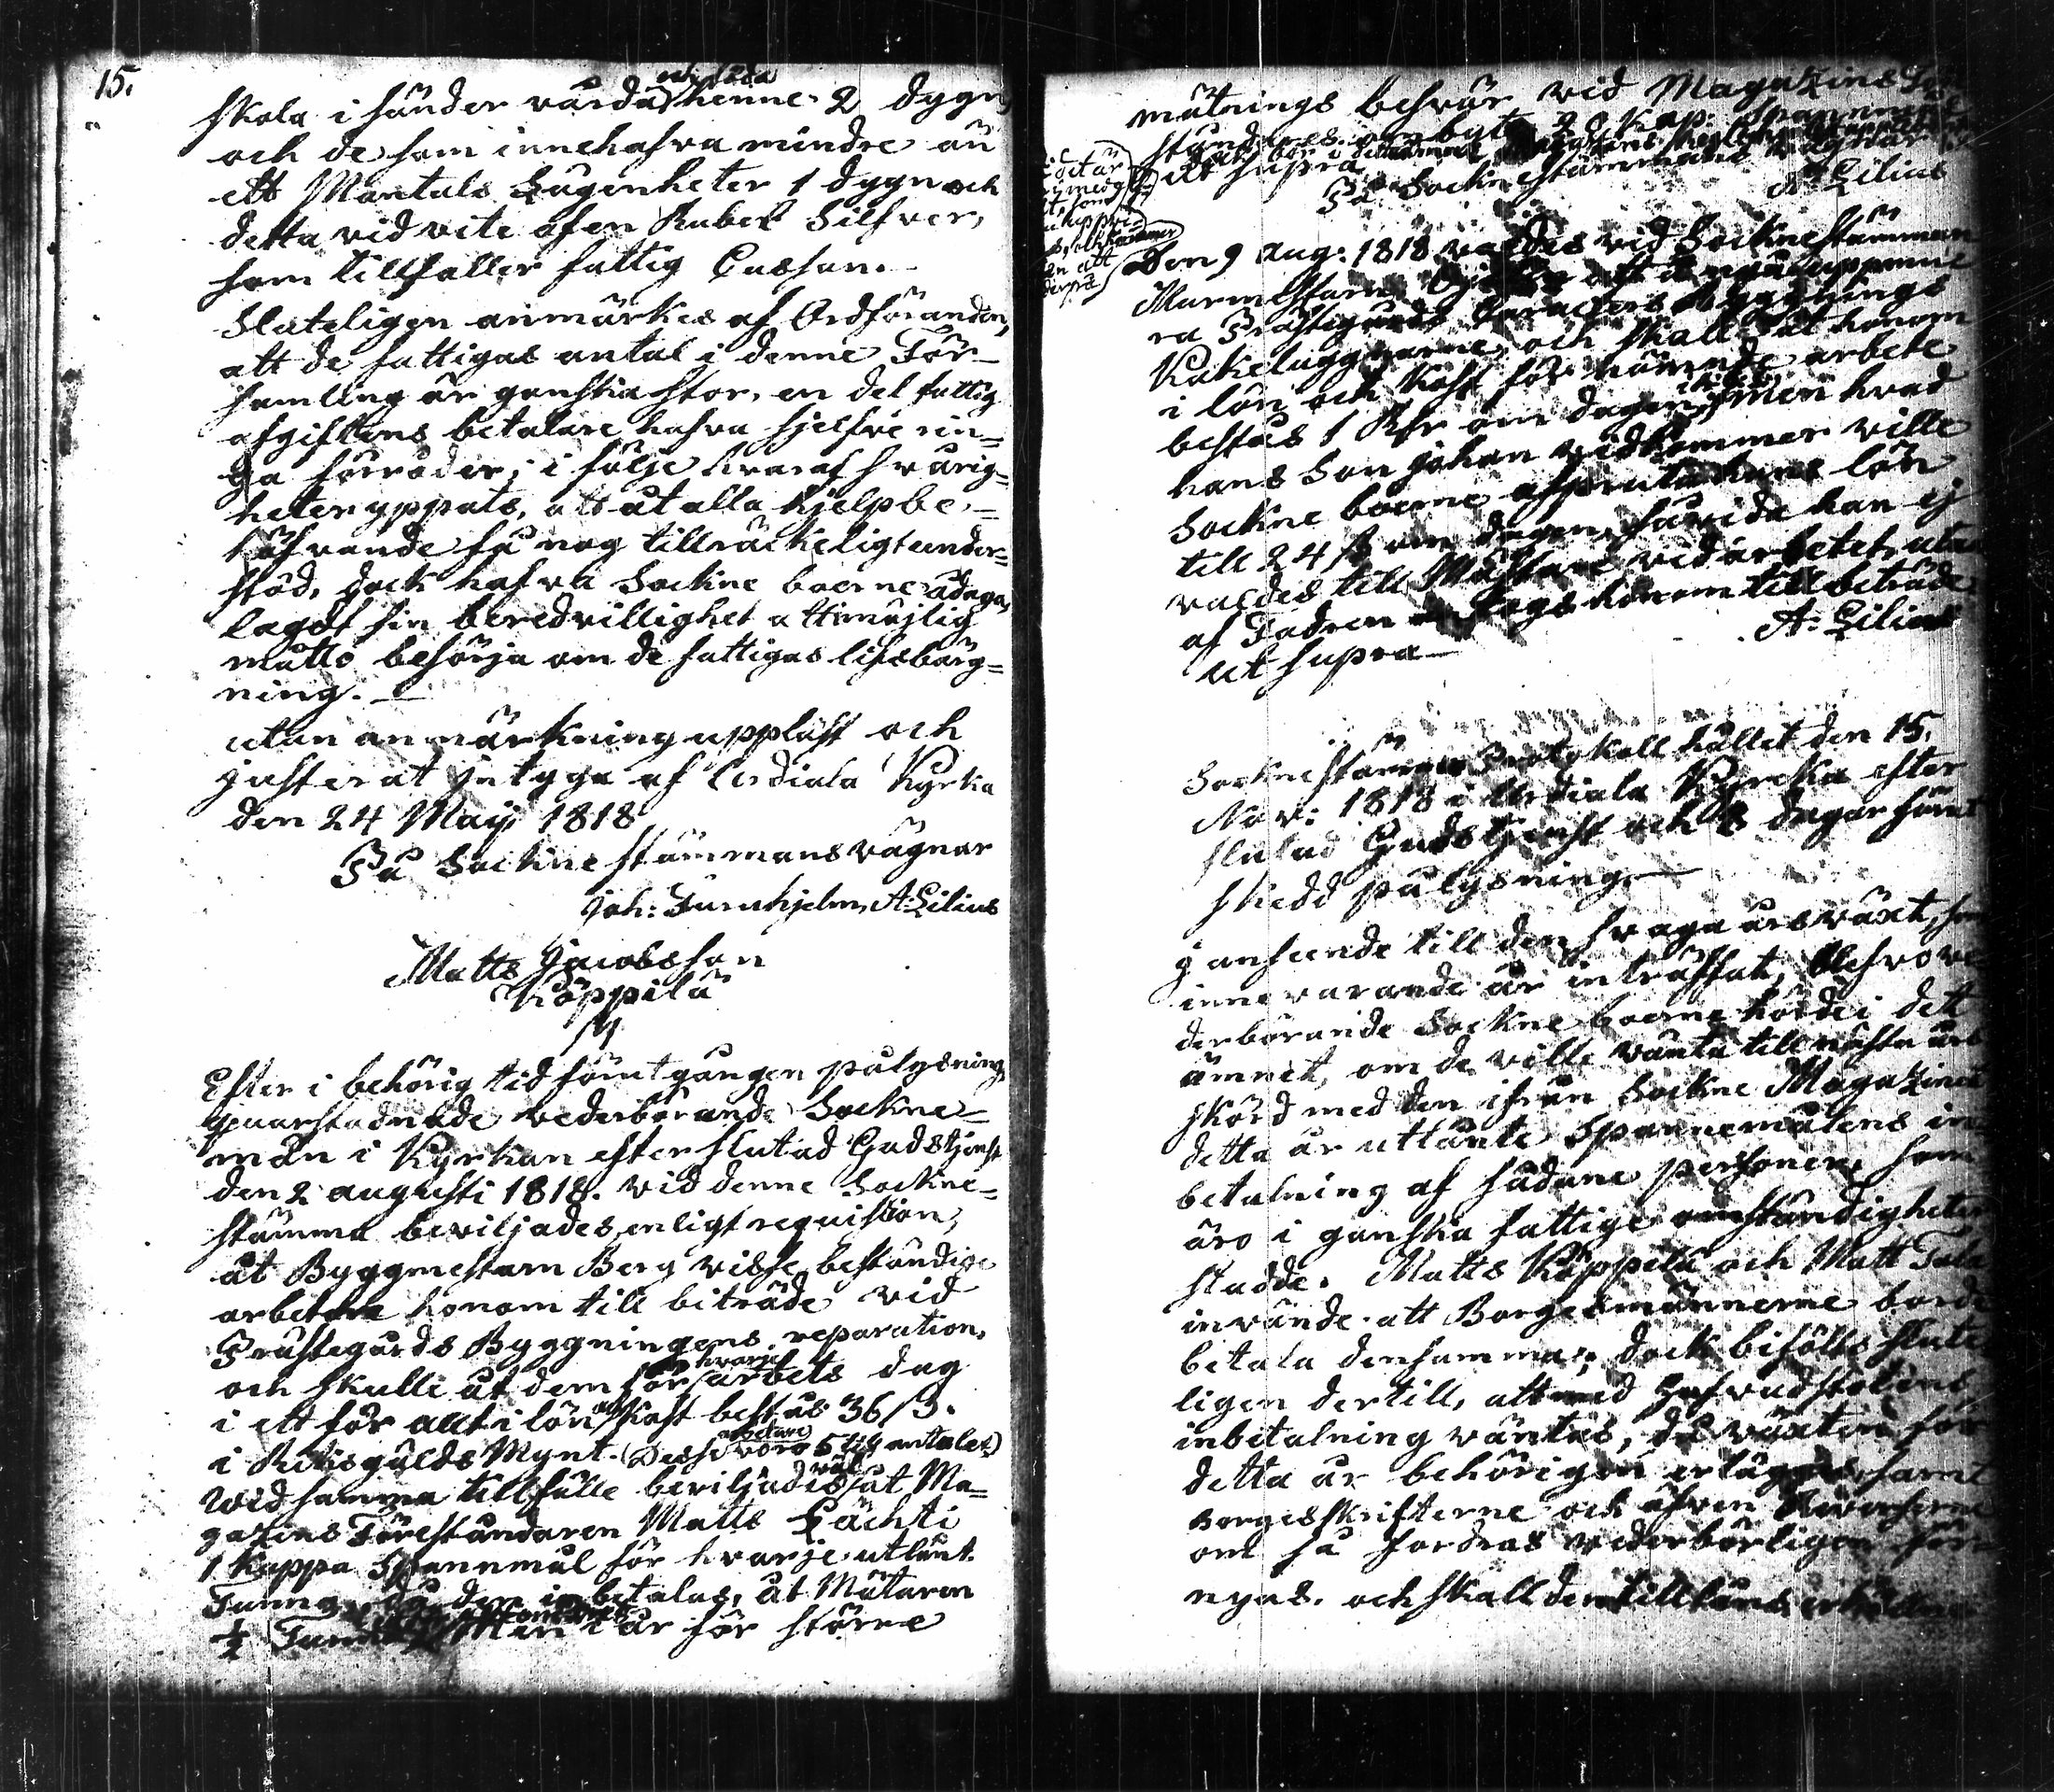 15.
och föda
skola i sänder vårda henne 2 dygn,
och de som innehafva mindre än
ett Mantals Lägenheter 1 dygn och
detta vid vite af en Rubel Silfver,
som tillfaller fattig Cassan.
Sluteligen anmärktes af Ordföranden,
att de fattigas antal i denne För-
samling är ganska stor, en del fattig
afgiftens betalare hafva sjelfve rin-
ga förråder, i följe hvaraf svårig-
heter yppats, att åt alla hjelpbe-
höfvande få nog tillräckeligt under-
stöd, dock hafva Sockne boerne ådaga
lagdt sin beredvillighet att möjlig
måtto besörja om de fattigas lifsbärg-
ning. —
utan anmärkning uppläst och
justerat intyga af Urdiala Kyrka
den 24 Maji 1818
På Sockne stämmans vägnar
Joh: Furuhjelm, A: Lilius
Matts Jacobsson
Köppilä
Efter i behörig tid förutgången pålysning
quarstadnade vederbörande Sockne-
män i Kyrkan efter slutad Gudstjenst
den 2 augusti 1818. vid denne Sockne-
stämma beviljades, enligt requisition,
åt Byggmestarn Berg visse beständige
arbetare honom till biträde vid
Prästegårds Byggningens reparation,
och skulle åt dem för hvarje arbets dag
i ett för allt i lön och kost bestås 36 ß.
i Riksgälds Mynt. (Desse arbetare voro 5 till antalet)
Wid samma tillfälle beviljades väl åt Ma-
gazins Föreståndaren Matts Lächti
1 Kappa Spannmål för hvarje utlånt
Tunna, då den inbetalas, åt Mätaren
½ Tunna Men i år för större
mätnings besvär vid Magazins
ståndares ombyte 2 Kap: Spannmål
Ut supra
På Sockne stämmans vägnar
A: Lilius
Den 9 aug: 1818 valdes vid Sockne stämman
Murmestarn att
ra Prästegårds Caracters Byggnings
Kakelugnarne, och skall åt honom
i lön och kost för nämnde arbete
bestås 1 Rdr om dagen, men hvad
hans Son Johan vidkommer ville
Sockne boerne afpruta hans lön
till 24 ß om dagen, såvida han ej
valdes till Mästare vid arbetet, utan
af Fadren togs honom till biträde
A: Lilius
ut supra —
Sockne stämmo Protokoll hållet den 15.
Nov: 1818 i Urdiala Kyrcka efter
slutad Gudstjenst och 8 dagar förut
skedd pålysning. —
I anseende till den svaga årsväxt, som
innevarande år inträffat, blefvo ve
derbörande Sockne boerne hörde i det
ämnet, om de ville vänta till nästa års
skörd med den ifrån Sockne Magazinet
detta år utlånte Spannemålens in-
betalning af sådane personer, som
äro i ganska fattige omständigheter
stadde. Matts Köppilä och Matt
invände att Borgesmännerne borde
betala densamma; dock biföllts slute
ligen dertill, att med Hufvudstolens
inbetalning väntas, då växten för
detta år behörigen erlägges, samt
borgesskrifterne och äfven Reverserne
om så fordras vederbörligen för
nyas. och skall den